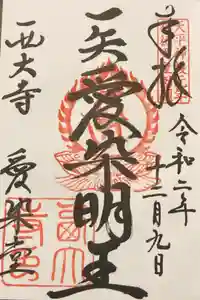 奉拝
令和二年
十二月九日
一矢愛染明王
西大寺
愛染堂